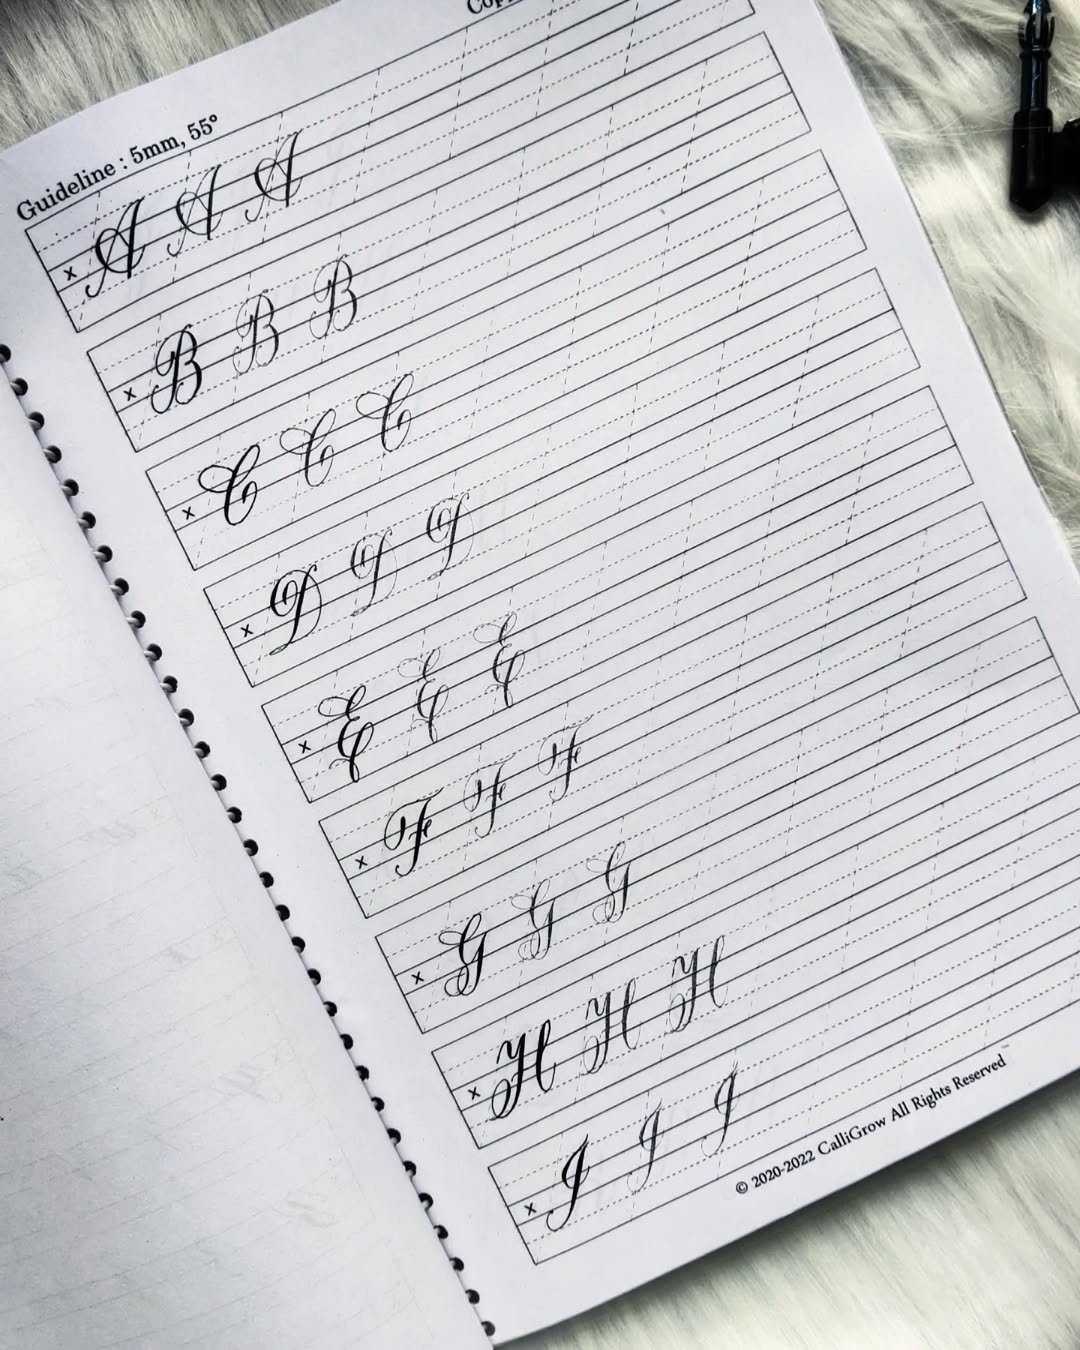 Guideline : 5mm, 55°
A A A
x
B B B
x
C C C
x
D D D
x
E E E
x
F F F
x
G G G
x
H H H
x
I I I
x
© 2020-2022 CalliGrow All Rights Reserved™